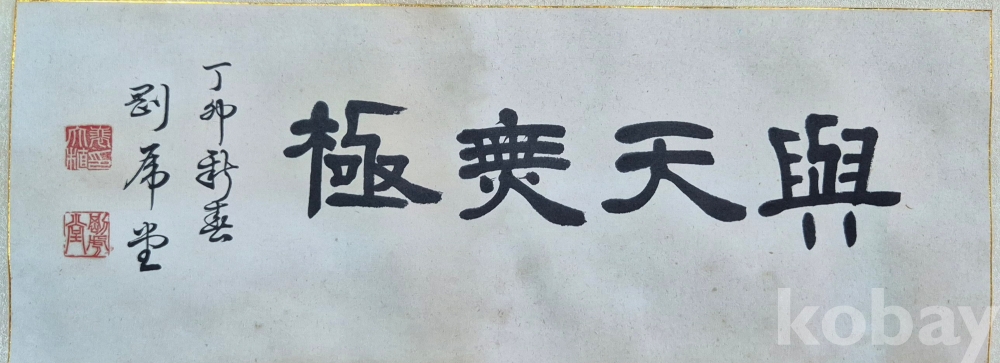 與天無極
丁卯新春
剛虎堂
kobay